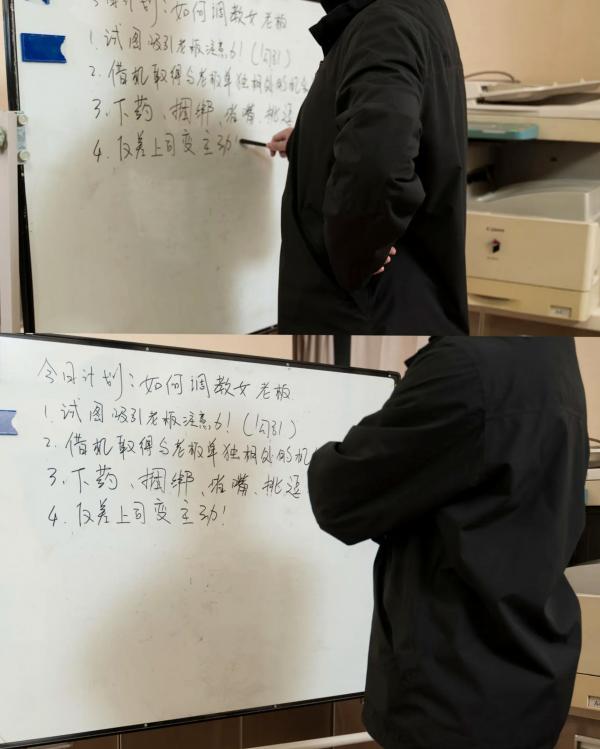 今日计划：如何调教女老板
1. 试图吸引老板注意力！（勾引）
2. 借机取得与老板单独相处的机会
3. 下药、捆绑、堵嘴、挑逗
4. 反差上司变主动！
Canon
今日计划：如何调教女老板
1. 试图吸引老板注意力！（勾引）
2. 借机取得与老板单独相处的机
3. 下药、捆绑、堵嘴、挑逗
4. 反差上司变主动！